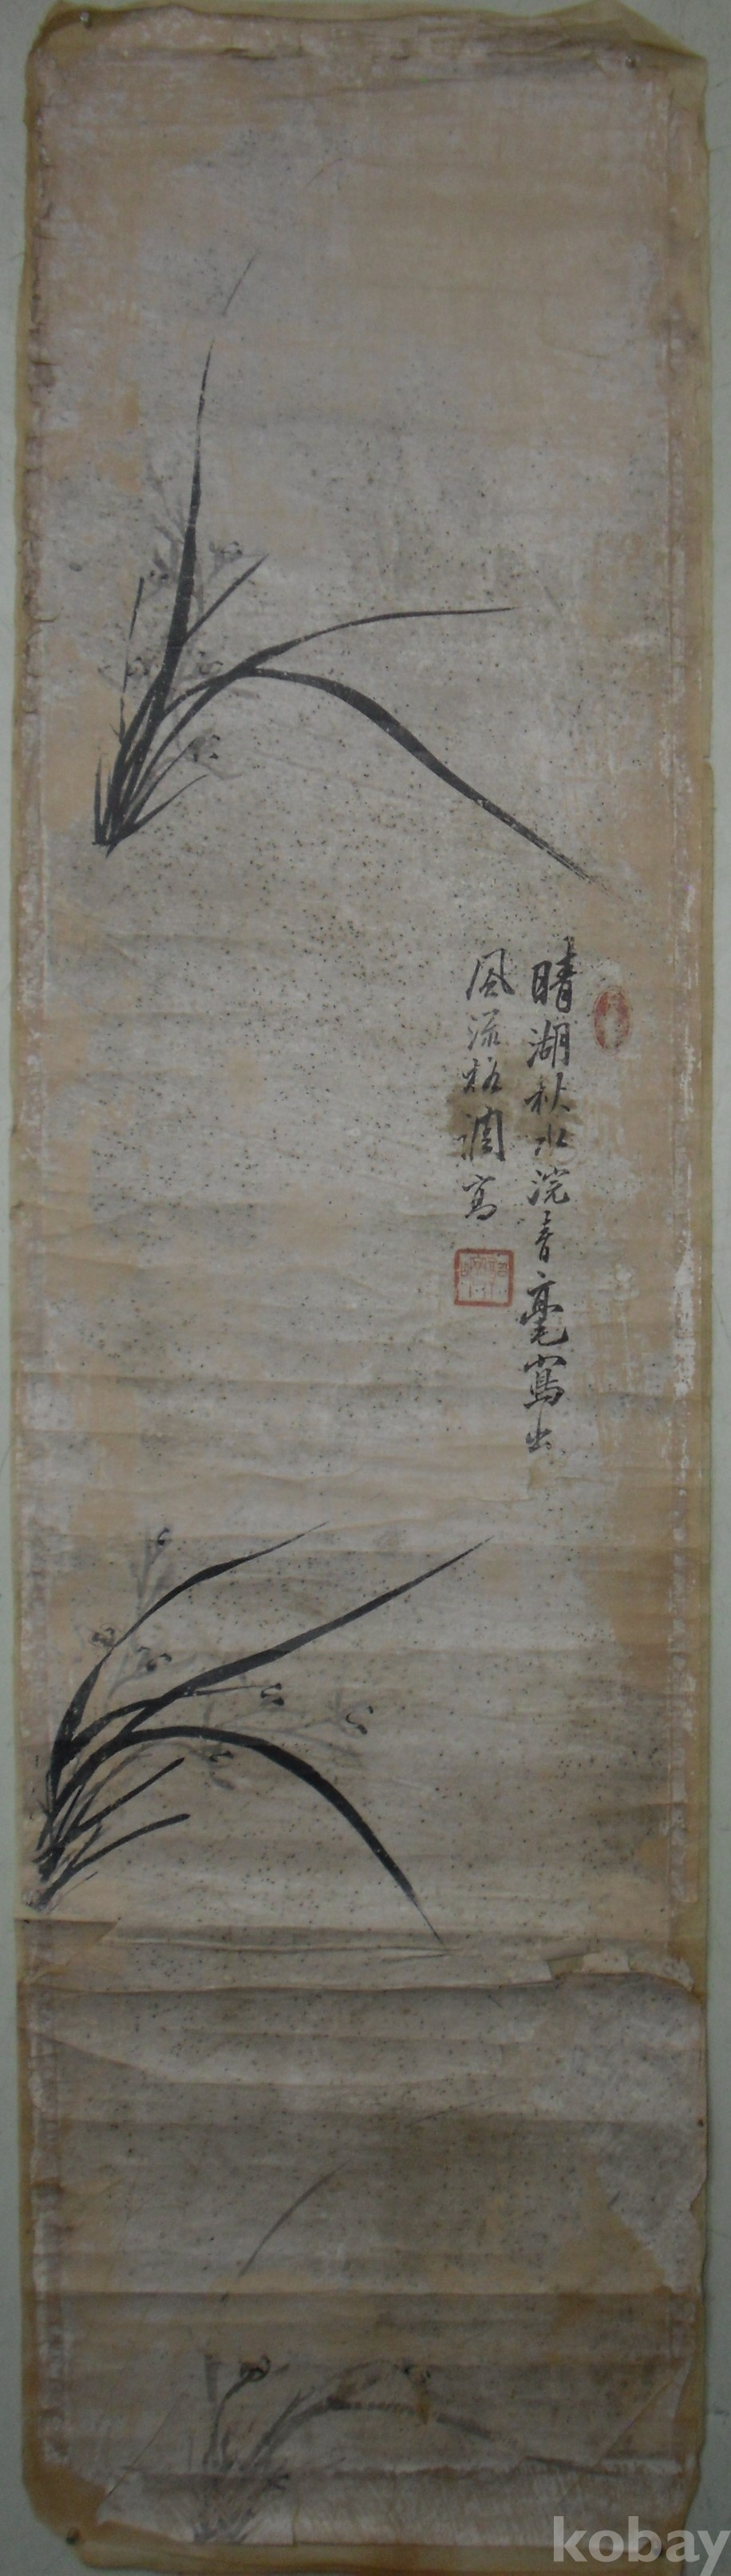 晴湖秋水浣香毫寫出
風流格調寫
kobay